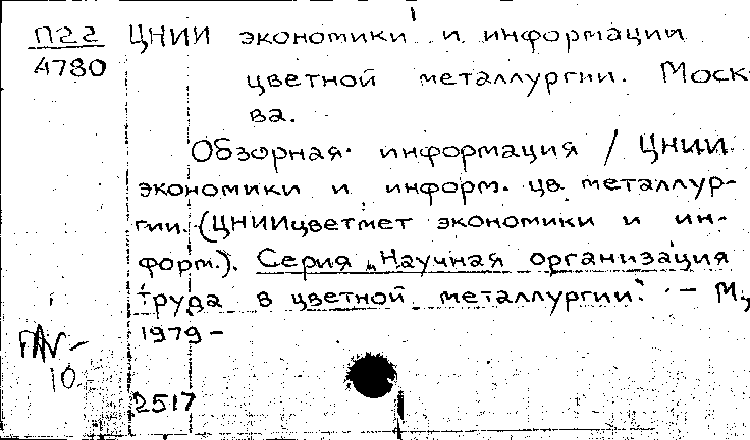 П22 ЦНИИ экономики и информации
4780
цветной металлургии. Моск
ва.
Обзорная информация / ЦНИИ
экономики и информ. цв. металлур-
гии. (ЦНИИцветмет экономики и ин-
форм.). Серия „Научная организация
труда в цветной металлургии". - М.,
1979 -
10.
2517